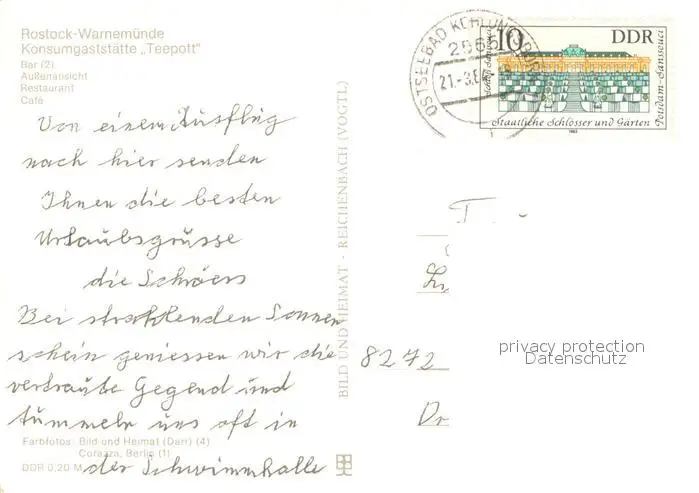 Rostock-Warnemünde
Konsumgaststätte „Teepott"
Bar (2)
Außenansicht
Restaurant
Café
Von einem Ausflug
nach hier senden
Ihnen die besten
Urlaubsgrüsse
die Schröers
Bei strahlenden Sonnen
schein geniessen wir die
vertraute Gegend und
tümmeln uns oft in
der Schwimmhalle
Farbfotos: Bild und Heimat (Darr) (4)
Corazza, Berlin (1)
DDR 0,20 M
BILD UND HEIMAT - REICHENBACH (VOGTL)
OSTSEEBAD KÜHLUNGSBORN
2565
21.-3.8
10
DDR
Potsdam-Sanssouci
Staatliche Schlösser und Gärten
1983
T
8272
Dr
privacy protection
Datenschutz